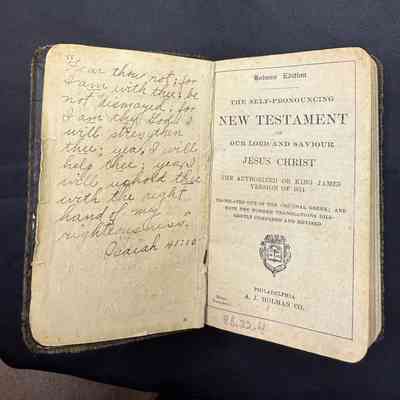 "Fear thou not; for
I am with thee: be
not dismayed; for
I am thy God: I
will strengthen
thee; yea, I will
help thee; yea, I
will uphold thee
with the right
hand of my
righteousness."
Isaiah 41:10
Holman Edition
THE SELF-PRONOUNCING
NEW TESTAMENT
OF
OUR LORD AND SAVIOUR
JESUS CHRIST
THE AUTHORIZED OR KING JAMES
VERSION OF 1611
TRANSLATED OUT OF THE ORIGINAL GREEK; AND
WITH THE FORMER TRANSLATIONS DILI-
GENTLY COMPARED AND REVISED
PHILADELPHIA
A. J. HOLMAN CO.